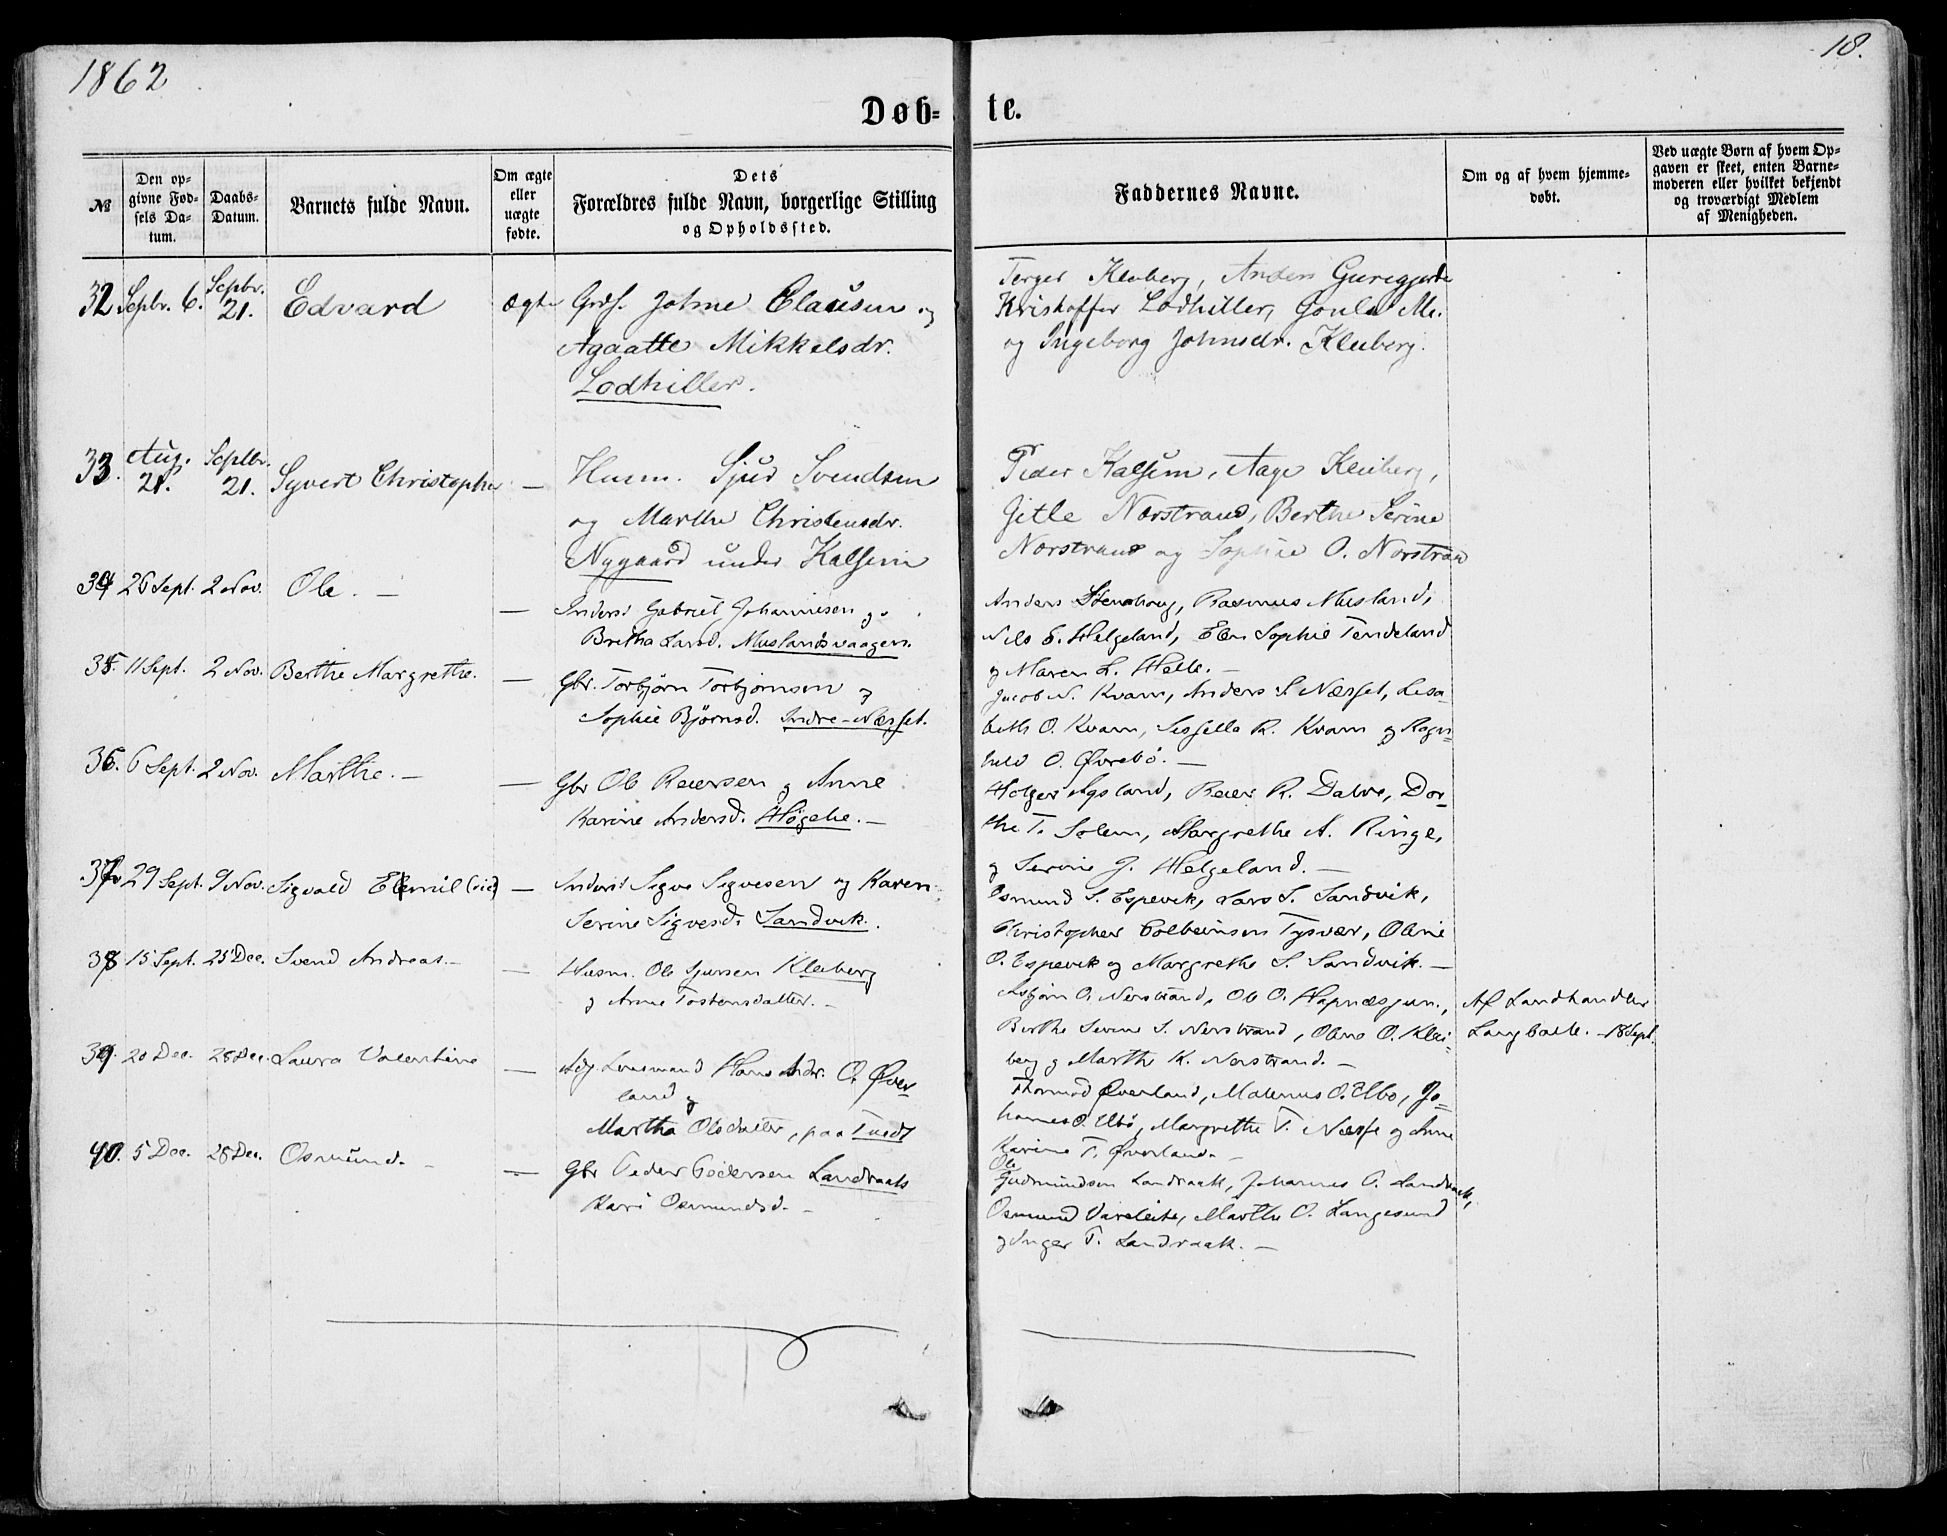 1862
18.
Døb-te.
№
Den opgivne Fødsels Datum.
Daabs-Datum.
Barnets fulde Navn.
Om ægte eller uægte fødte.
Dets Forældres fulde Navn, borgerlige Stilling og Opholdssted.
Faddernes Navne.
Om og af hvem hjemmedøbt.
Ved uægte Børn af hvem Opgaven er skeet, enten Barnemoderen eller hvilket bekjendt og troværdigt Medlem af Menigheden.
32 Sepbr. 6. Sepbr. 21. Edvard ægte
Johne Clausen og
Agaatte Mikkelsdr.
Lodhiller.
Kleiberg, Anders
Kristoffer Lodhiller,
og Ingeborg Johnsdr. Kleiberg.
33. Aug. 21. Septbr. 21. Syvert Christopher —
Husm. Sjur Svendsen
og Marthe Christensdr.
Nygaard under Kalsem
Peder Kalsem, Aage Kleiberg,
Gitle Norstrand, Berthe Serine
Norstrand og Sophie O. Norstran
34 26 Sept. 2 Nov. Ole. — —
Inders. Gabriel Johannesen og
Britha Larsd. Muslandsvaagen.
Anders Stenshoug, Rasmus Musland,
Nils E. Helgeland, Elen Sophie Tendeland
og Maren L. Helle. —
35. 11 Sept. 2 Nov. Berthe Margrethe. —
Gbr. Torbjørn Torbjørnsen og
Sophie Bjørnsd. Indre-Næsset.
Jacob N. Kvam, Anders S. Næsset, Lisa-
beth O. Kvam, Sissella R. Kvam og Ragn-
hild O. Øvrebø. —
36. 6 Sept. 2 Nov. Marthe. — —
Gbr Ole Reiersen og Anne
Karine Andersd. Høgelie. —
Holger Aysland, Reier R. Dalve, Dor-
the T. Solem, Margrethe A. Ringe,
og Serine J. Helgeland. —
37 29 Sept. 9 Nov. Sigvald Elemil (sic) —
Inders. Sigve Sigvesen og Karen
Serine Sigvesd. Sandvik.
Osmund S. Espevik, Lars S. Sandvik,
Christopher Colbeinsen Tysvær, Oline
O. Espevik og Margrethe S. Sandvik. —
38 15 Sept. 25 Dec. Svend Andreas. — —
Husm. Ole Sjursen Kleiberg
og Anne Tostensdatter. —
Asbjørn O. Nerstrand, Ole O. Hapnæsgun.,
Berthe Serine S. Nerstrand, Oline O. Klei-
berg og Marthe K. Nerstrand. —
Af Landhandler
Langballe. — 18 Sept.
39. 20 Dec. 28 Dec. Laura Valentine —
Adj. Lensmand Hans Andr. O. Øver-
land og
Martha Olsdatter, paa Tvedt
Thormod Øverland, Malenus O. Elbø, Jo-
hannes O. Elbø, Margrethe T. Næsse og Anne
Karine T. Øverland. —
40. 5 Dec. 28 Dec. Osmund. — —
Gbr Peder Pedersen Landraak
Kari Osmundsd. —
Ole
Gudmundsen Landraak, Johannes P. Landraak,
Osmund Vareleite, Marthe O. Langesund
og Inger T. Landraak. —